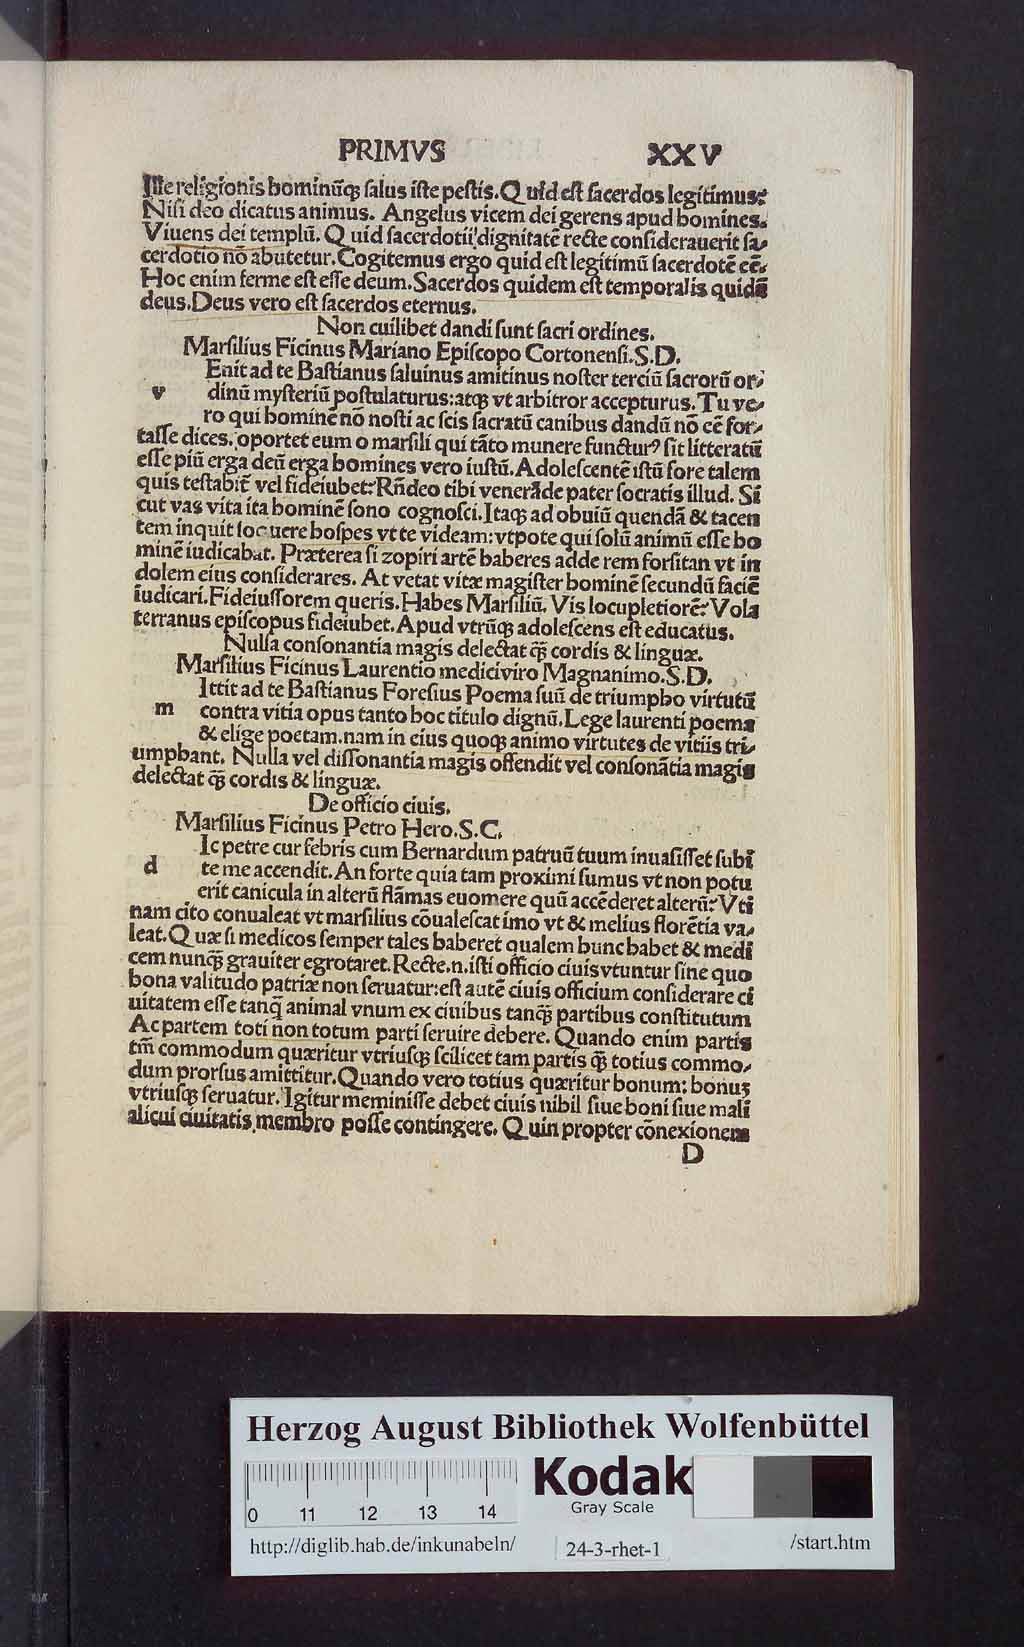 PRIMVS XXV
Ille religionis hominūqꝫ salus iste pestis. Quid est sacerdos legitimus?
Nisi deo dicatus animus. Angelus vicem dei gerens apud homines.
Viuens dei templū. Quid sacerdotii dignitatē recte considerauerit sa-
cerdotio nō abutetur. Cogitemus ergo quid est legitimū sacerdotē eē.
Hoc enim ferme est esse deum. Sacerdos quidem est temporalis quidā
deus. Deus vero est sacerdos eternus.
Non cuilibet dandi sunt sacri ordines.
Marsilius Ficinus Mariano Episcopo Cortonensi. S. D.
Enit ad te Bastianus saluinus amitinus noster terciū sacrorū or-
v dinū mysteriū postulaturus: atqꝫ vt arbitror accepturus. Tu ve-
ro qui hominē nō nosti ac scis sacratū canibus dandū nō eē for-
tasse dices. oportet eum o marsili qui tāto munere functurꝰ sit litteratū
esse piū erga deū erga homines vero iustū. Adolescentē istū fore talem
quis testabit̄ vel fideiubet? Rñdeo tibi venerāde pater socratis illud. Si
cut vas vita ita hominē sono cognosci. Itaqꝫ ad obuiū quendā & tacen
tem inquit loquere hospes vt te videam: vtpote qui solū animū esse ho
minē iudicabat. Præterea si zopiri artē haberes adde rem forsitan vt in
dolem eius considerares. At vetat vitæ magister hominē secundū faciē
iudicari. Fideiussorem queris. Habes Marsiliū. Vis locupletiorē? Vola
terranus episcopus fideiubet. Apud vtrūqꝫ adolescens est educatus.
Nulla consonantia magis delectat q̄ꝫ cordis & linguæ.
Marsilius Ficinus Laurentio mediciviro Magnanimo. S. D.
Ittit ad te Bastianus Foresius Poema suū de triumpho virtutū
m contra vitia opus tanto hoc titulo dignū. Lege laurenti poema
& elige poetam. nam in eius quoqꝫ animo virtutes de vitiis tri-
umphant. Nulla vel dissonantia magis offendit vel consonātia magis
delectat q̄ꝫ cordis & linguæ.
De officio ciuis.
Marsilius Ficinus Petro Hero. S. C.
Ic petre cur febris cum Bernardum patruū tuum inuasisset subi
d te me accendit. An forte quia tam proximi sumus vt non potu
erit canicula in alterū flāmas euomere quū accēderet alterū? Vti
nam cito conualeat vt marsilius cōualescat imo vt & melius florētia va-
leat. Quæ si medicos semper tales haberet qualem hunc habet & medi
cem nunqꝫ grauiter egrotaret. Recte .n. isti officio ciuis vtuntur sine quo
bona valitudo patriæ non seruatur: est autē ciuis officium considerare ci
uitatem esse tanq̄ animal vnum ex ciuibus tanq̄ꝫ partibus constitutum
Ac partem toti non totum parti seruire debere. Quando enim partis
tm̄ commodum quæritur vtriusqꝫ scilicet tam partis q̄ꝫ totius commo-
dum prorsus amittitur. Quando vero totius quæritur bonum: bonuꝫ
vtriusqꝫ seruatur. Igitur meminisse debet ciuis nihil siue boni siue mali
alicui ciuitatis membro posse contingere. Quin propter cōnexionem
D
Herzog August Bibliothek Wolfenbüttel
0 11 12 13 14
Kodak
Gray Scale
http://diglib.hab.de/inkunabeln/ 24-3-rhet-1 /start.htm